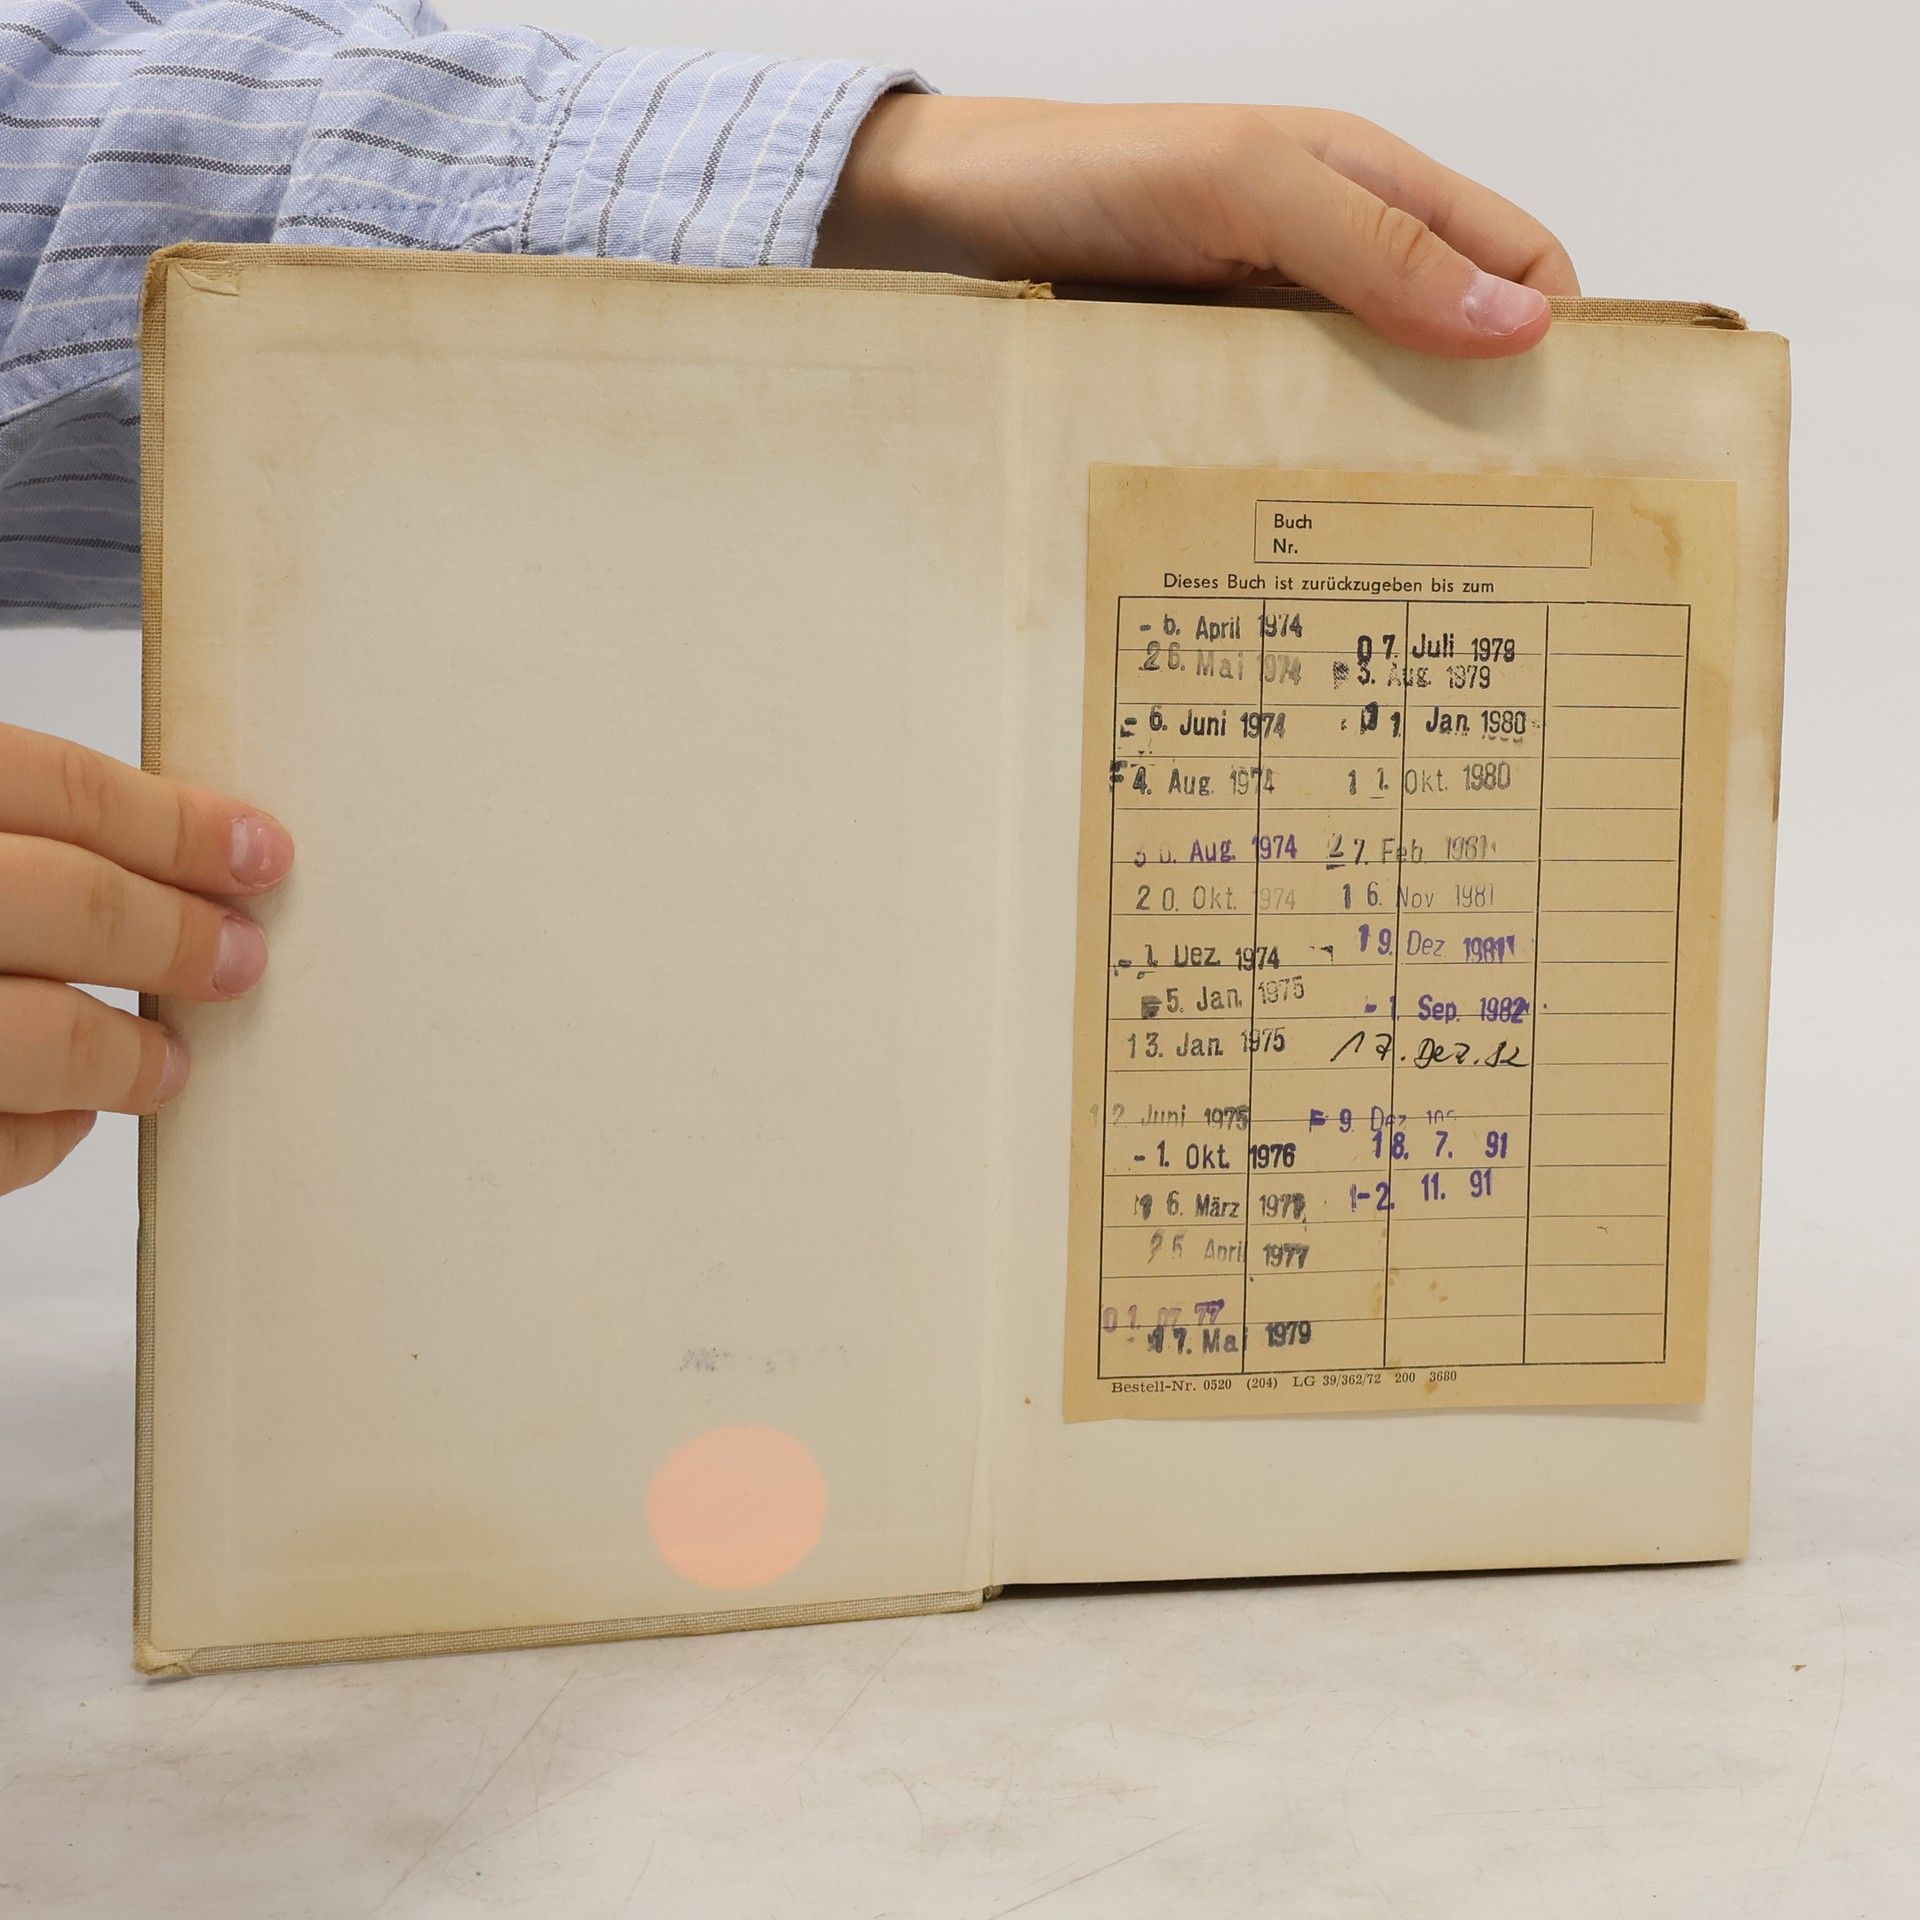 Buch
Nr.
Dieses Buch ist zurückzugeben bis zum
- 6. April 1974
26. Mai 1974
- 6. Juni 1974
4. Aug. 1974
Aug. 1974
20. Okt. 1974
- 1. Dez. 1974
5. Jan. 1975
13. Jan. 1975
12. Juni 1975
- 1. Okt. 1976
16. März 1977
25. April 1977
01. 07. 77
17. Mai 1979
07. Juli 1979
3. Aug. 1979
Jan. 1980
11. Okt. 1980
27. Feb. 1981
16. Nov 1981
19. Dez 1981
- 1. Sep. 1982
17. Dez. 82
9. Dez
18. 7. 91
-2. 11. 91
Bestell-Nr. 0520 (204) LG 39/362/72 200 3680